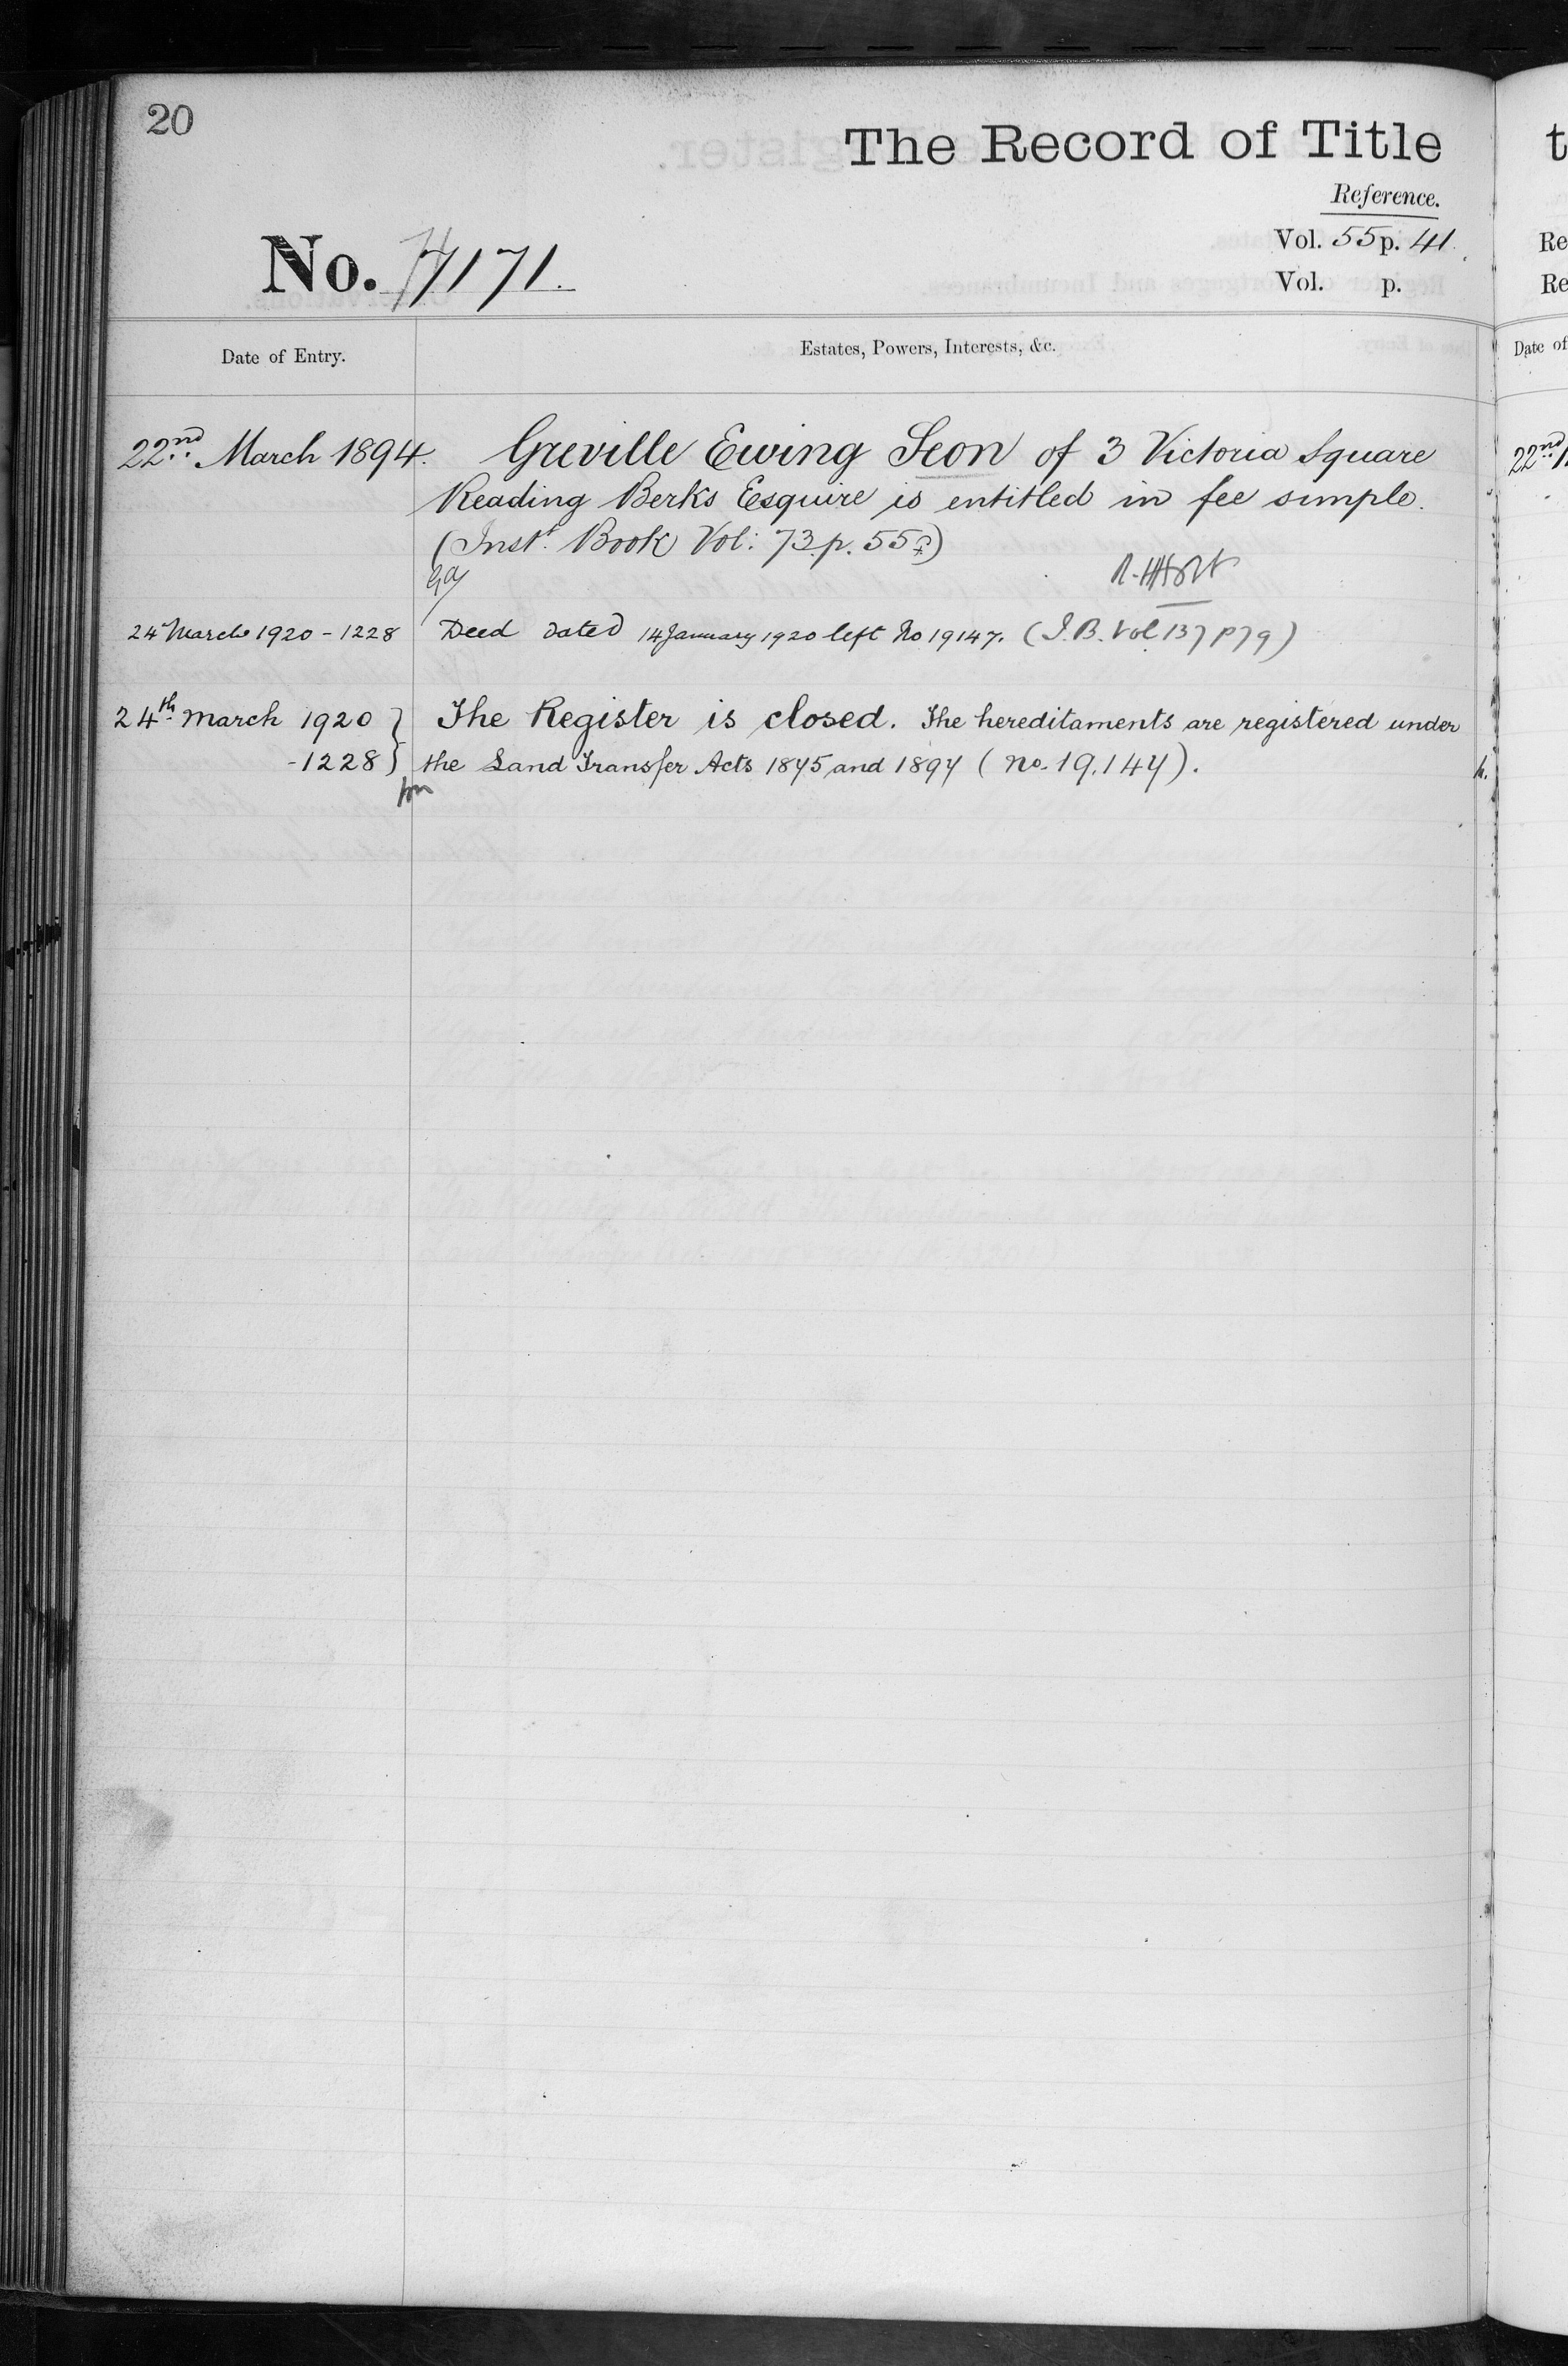 20
The Record of Title
Reference.
Vol. 55 p. 41.
No. 7171.
Vol. p.
Date of Entry.
Estates, Powers, Interests, &c.
22nd March 1894.
Greville Ewing Seon of 3 Victoria Square
Reading Berks Esquire is entitled in fee simple.
(Inst. Book Vol: 73. p. 55)
24 March 1920 - 1228
Deed dated 14 January 1920 left No 19147. (I.B. Vol 137 p 79)
24th March 1920 }
The Register is closed. The hereditaments are registered under
-1228 }
the Land Transfer Acts 1875 and 1897 (No. 19.147).
t
Re
Re
Date of
22nd